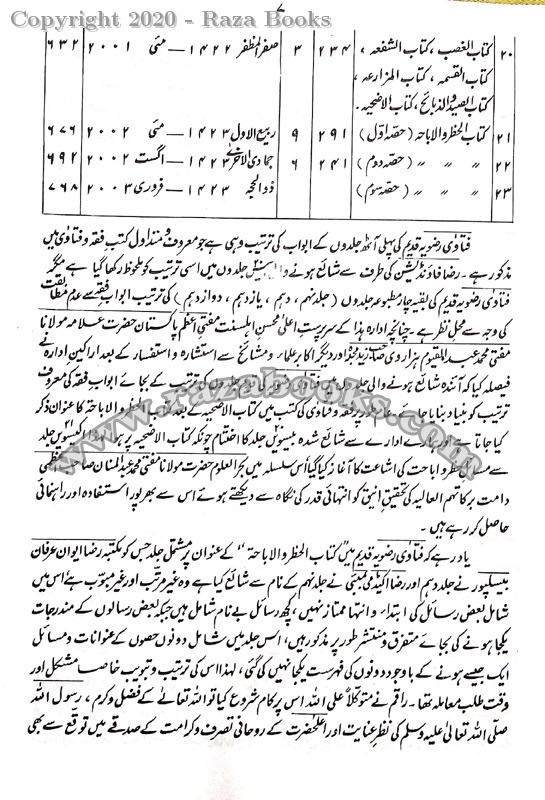 Copyright 2020 - Raza Books
۷
۲۰ کتاب الغصب ، کتاب الشفعہ ، ۲۳۴ ۳ صفر المظفر ۱۴۲۲ — مئی ۲۰۰۱ ۶۳۲
کتاب القسمہ ، کتاب المزارعہ ،
کتاب الصید والذبائح ، کتاب الاضحیہ ۔
۲۱ کتاب الحظر والاباحہ (حصہ اوّل) ۲۹۱ ۹ ربیع الاول ۱۴۲۳ — مئی ۲۰۰۲ ۶۷۶
۲۲ " " " (حصہ دوم) ۲۴۱ ۶ جمادی الاخریٰ ۱۴۲۳ — اگست ۲۰۰۲ ۶۹۲
۲۳ " " " (حصہ سوم) ذوالحجہ ۱۴۲۳ — فروری ۲۰۰۳ ۷۶۸
فتاوٰی رضویہ قدیم کی پہلی آٹھ جلدوں کے ابواب کی ترتیب وہی ہے جو معروف و متداول کتب فقہ و فتاوٰی میں
مذکور ہے ۔ رضا فاؤنڈیشن کی طرف سے شائع ہونے والی بیس جلدوں میں اسی ترتیب کو ملحوظ رکھا گیا ہے مگر
فتاوٰی رضویہ قدیم کی بقیہ چار مطبوعہ جلدوں (جلد نہم ، دہم ، یازدہم ، دوازدہم) کی ترتیب ابواب فقہ سے عدم مطابقت
کی وجہ سے محل نظر ہے ۔ چنانچہ ادارہ ہذا کے سرپرست اعلیٰ محسن اہلسنت مفتی اعظم پاکستان حضرت علامہ مولانا
مفتی محمد عبدالقیوم ہزاروی اور دیگر اکابر علماء و مشائخ سے استشارہ و استفسار کے بعد اراکین ادارہ نے
فیصلہ کیا کہ آئندہ شائع ہونے والی جلدوں میں فتاوٰی رضویہ کی جلدوں کی ترتیب کے بجائے ابواب فقہ کی معروف
ترتیب کو بنیاد بنایا جائے ۔ عام طور پر فقہ و فتاوٰی کی کتب میں کتاب الاضحیہ کے بعد کتاب الحظر والاباحۃ کا عنوان ذکر
کیا جاتا ہے اور ہمارے ادارے سے شائع شدہ بیسویں جلد کا اختتام چونکہ کتاب الاضحیہ پر ہوا لہذا اکیسویں جلد
سے مسائل حظر و اباحت کی اشاعت کا آغاز کیا گیا اس سلسلہ میں بحر العلوم حضرت مولانا مفتی محمد عبدالمنان صاحب اعظمی
دامت برکاتہم العالیہ کی تحقیق انیق کو انتہائی قدر کی نگاہ سے دیکھتے ہوئے اس سے بھرپور استفادہ اور راہنمائی
حاصل کر رہے ہیں ۔
یاد رہے کہ فتاوٰی رضویہ قدیم میں کتاب الحظر والاباحۃ " کے عنوان پر مشتمل جلد جس کو مکتبہ رضا ایوان عرفان
بیسلپور نے جلد دہم اور رضا اکیڈمی بمبئی نے جلد نہم کے نام سے شائع کیا ہے وہ غیر مرتب اور غیر مبوّب ہے اس میں
شامل بعض رسائل کی ابتداء و انتہا ممتاز نہیں ، کچھ رسائل بے نام شامل ہیں جبکہ بعض رسالوں کے مندرجات
یکجا ہونے کی بجائے متفرق و منتشر طور پر مذکور ہیں ، اس جلد میں شامل دونوں حصوں کے عنوانات و مسائل
ایک جیسے ہونے کے باوجود دونوں کی فہرست یکجا نہیں کی گئی ، لہذا اس کی ترتیب و تبویب خاصا مشکل اور
وقت طلب معاملہ تھا ۔ راقم نے متوکلاً علی اللہ اس پر کام شروع کیا تو اللہ تعالیٰ کے فضل و کرم ، رسول اللہ
صلی اللہ تعالیٰ علیہ وسلم کی نظر عنایت اور اعلحضرت کے روحانی تصرف و کرامت کے صدقے میں توقع سے بھی
www.razabooks.net